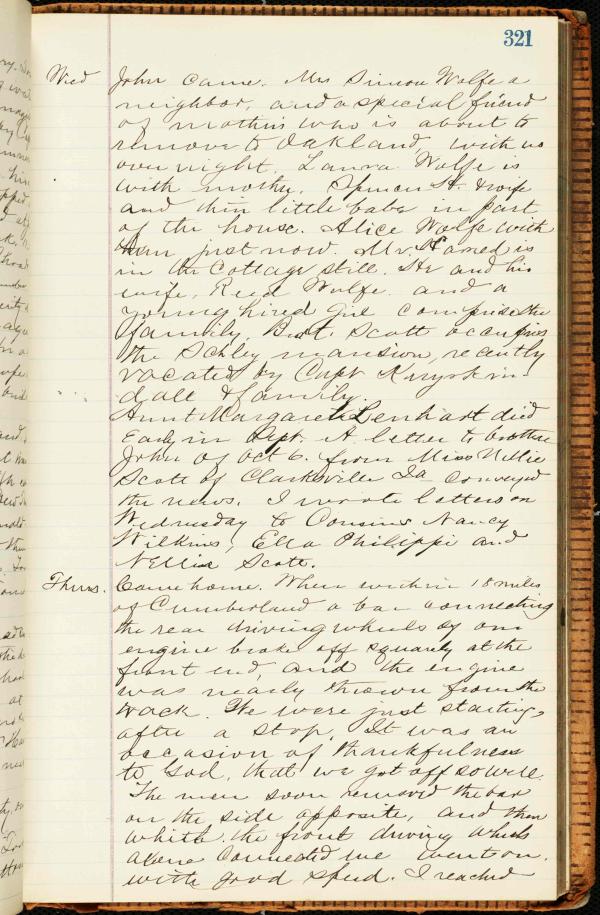 321
Wed John came. Mrs Simon Wolfe a
neighbor, and a special friend
of mothers who is about to
remove to Oakland, with us
over night. Laura Wolfe is
with mother. Spencer & wife
and their little babe in part
of the house. Alice Wolfe with
them just now. Mr Hamed is
in the Cottage still. He and his
wife, Reed Wolfe and a
young hired girl comprise the
family. Bart. Scott occupies
the Schley mansion, recently
vacated by Capt
& family.
Aunt Margaret Lenhart died
Early in Sept. A letter to brother
John of Oct 6. from Miss Nellie
Scott of Clarksville Ia conveyed
the news. I wrote letters on
Wednesday to Cousins Nancy
Wilkins, Ella Philippi and
Nellie Scott.
Thurs. Came home. When within 18 miles
of Cumberland a bar connecting
the rear driving wheels of our
engine broke off squarely at the
front end, and the engine
was nearly thrown from the
track. We were just starting
after a stop. It was an
occasion of thankfulness
to God, that we got off so well.
The men soon removed the bar
on the side opposite, and then
with the front driving wheels
alone connected we went on
with good speed. I reached